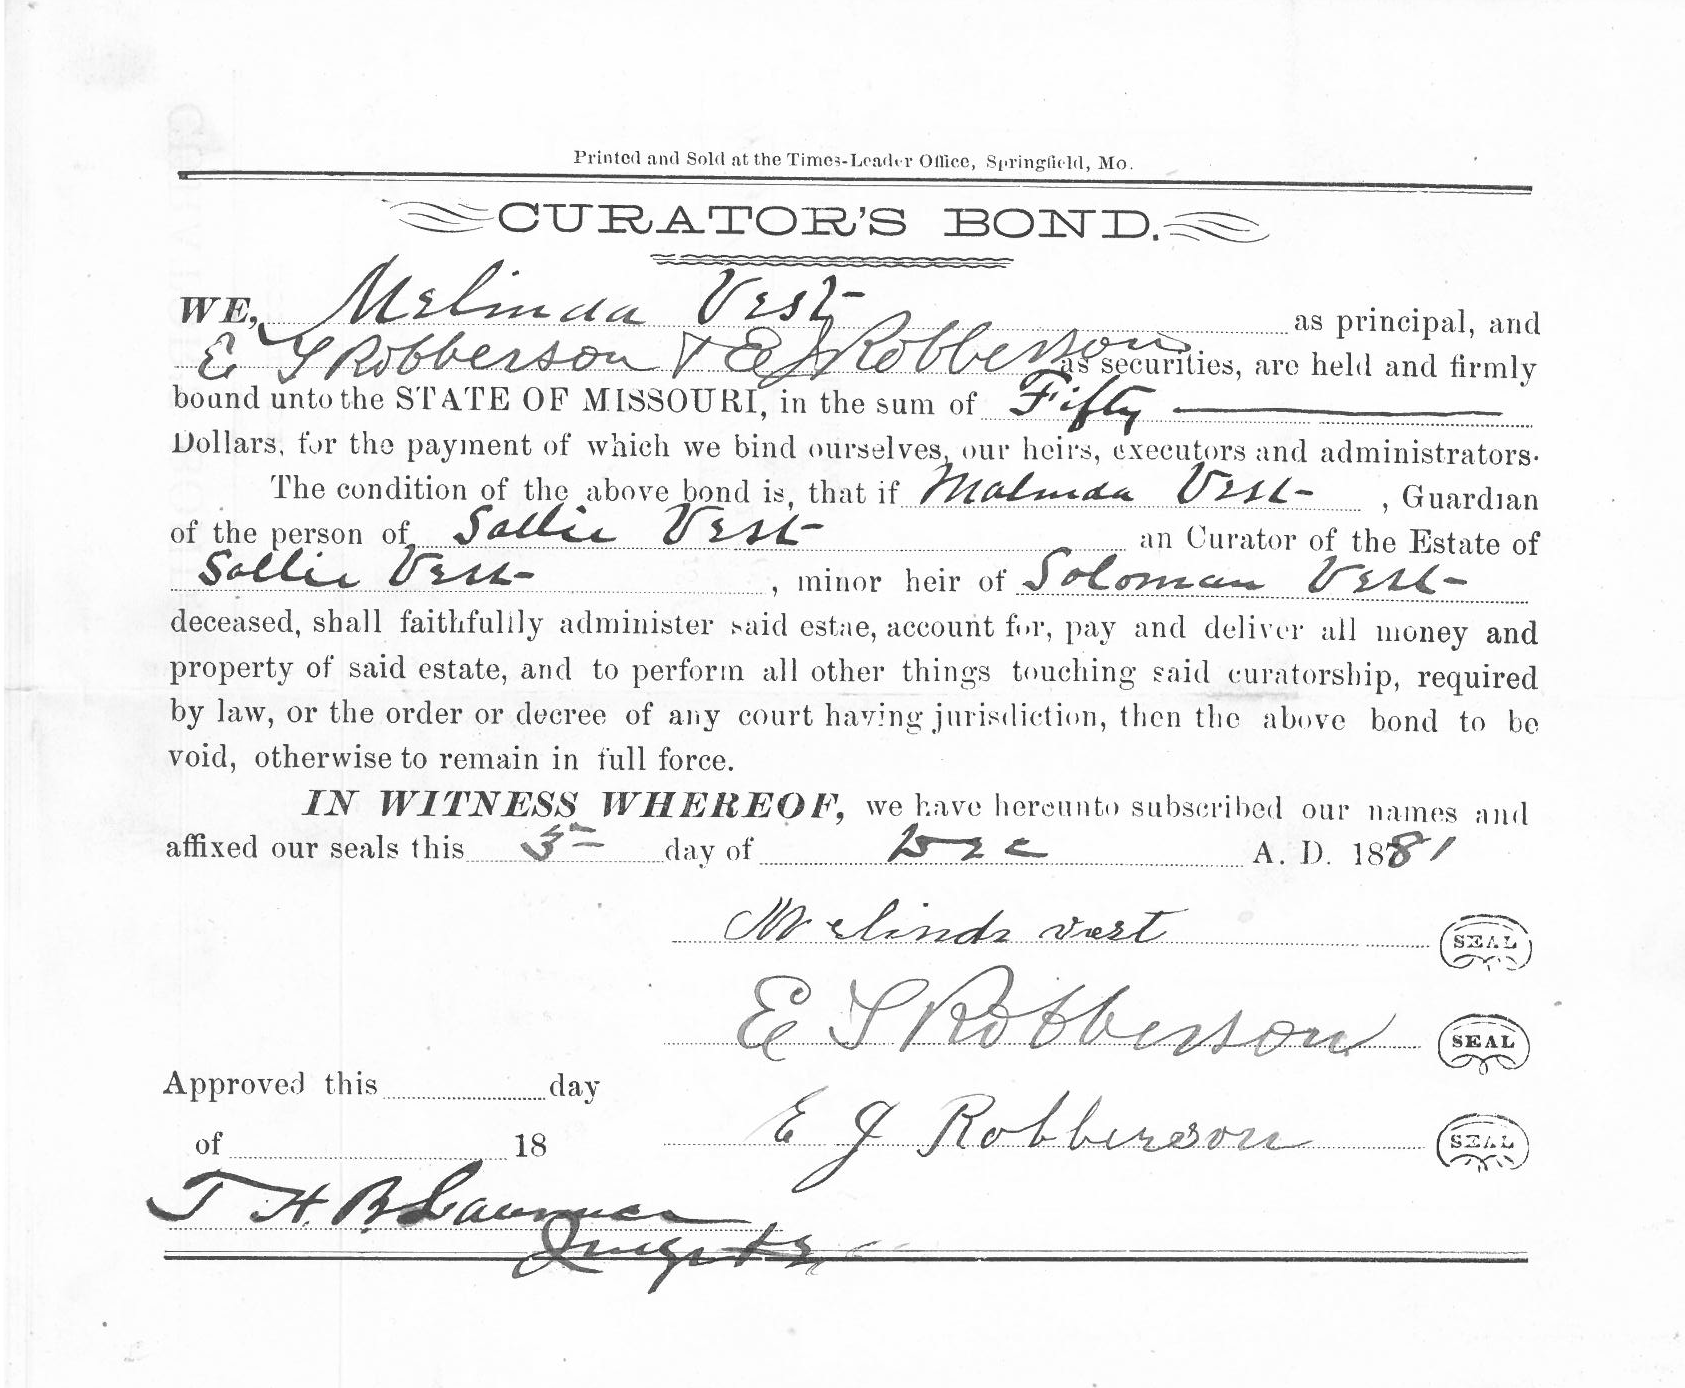 Printed and Sold at the Times-Leader Office, Springfield, Mo.
CURATOR'S BOND.
WE, Melinda Vest as principal, and
E T Robberson & E J Robberson as securities, are held and firmly
bound unto the STATE OF MISSOURI, in the sum of Fifty
Dollars, for the payment of which we bind ourselves, our heirs, executors and administrators.
The condition of the above bond is, that if Malinda Vest , Guardian
of the person of Sallie Vest an Curator of the Estate of
Sallie Vest , minor heir of Soloman Vest
deceased, shall faithfullly administer said estae, account for, pay and deliver all money and
property of said estate, and to perform all other things touching said curatorship, required
by law, or the order or decree of any court having jurisdiction, then the above bond to be
void, otherwise to remain in full force.
IN WITNESS WHEREOF, we have hereunto subscribed our names and
affixed our seals this 5th day of Dec A. D. 1881
Melinda vest SEAL
E T Robberson SEAL
Approved this day
E J Robberson SEAL
of 18
T H B